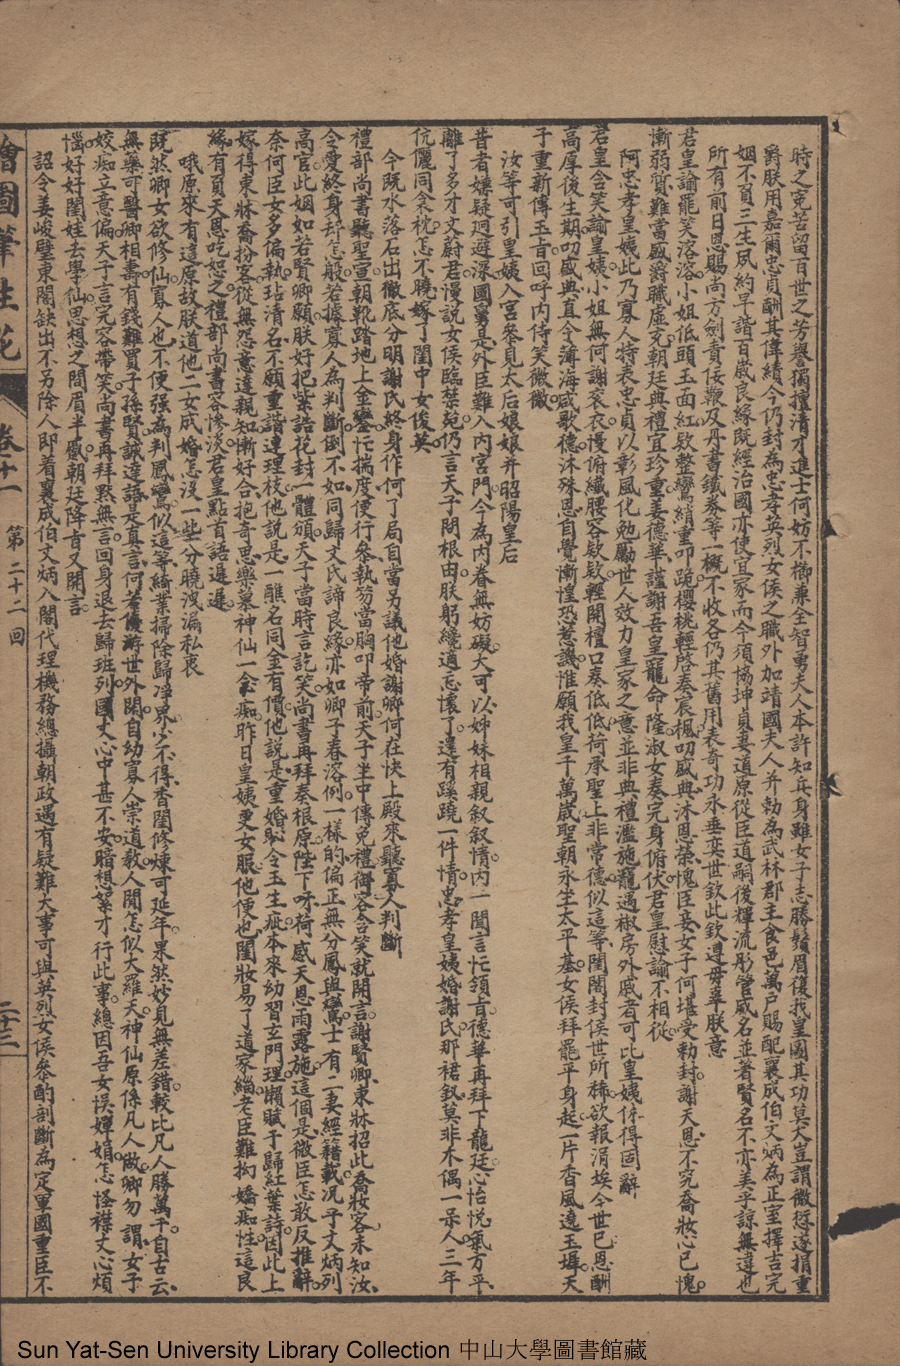 時之冤苦留百世之芳譽獨擅清才進士何妨不櫛兼全智勇夫人本許知兵身雖女子志勝鬚眉復我皇國其功莫大豈謂微愆遂捐重
爵朕用嘉爾忠貞酬其偉績今仍封為忠孝英烈女侯之職外加靖國夫人并勅為武林郡主食邑萬戶賜配襄成伯文炳為正室擇吉完
姻不負三生夙約早諧百歲良緣既經治國亦使宜家而今須協坤貞妻道原從臣道嗣後輝流彤管盛名並著賢名不亦美乎諒無違也
所有前日恩賜尚方劍責佞鞭及丹書鐵券等一概不收各仍其舊用表奇功永垂奕世欽此欽遵毋辜朕意
君皇諭罷笑溶溶小姐低頭玉面紅欵整鸞綃重叩跪櫻桃輕啓奏宸楓叨盛典沐恩榮愧臣妾女子何堪受勅封謝天恩不究喬妝心已愧
慚弱質難當盛爵職虛充朝廷典禮宜珍重姜德華謹謝吾皇寵命隆淑女奏完身俯伏君皇慰諭不相從
阿忠孝皇姨此乃寡人特表忠貞以彰風化勉勵世人效力皇家之意並非典禮濫施寵過椒房外戚者可比皇姨休得固辭
君皇含笑諭皇姨小姐無何謝袞衣慢俯纖腰容欵欵輕開檀口奏低低荷承聖上非常德似這等閨閤封侯世所稀欲報涓埃今世已恩酬
高厚後生期叨盛典直令薄海咸歌德沐殊恩自覺慚惶恐惹譏惟願我皇千萬歲聖朝永坐太平基女侯拜罷平身起一片香風遶玉墀天
子重新傳玉旨回呼內侍笑微微
汝等可引皇姨入宮參見太后娘娘并昭陽皇后
昔者嫌疑迴避深國舅是外臣難入內宮門今為內眷無妨礙大可以姊妹相親叙叙情內一聞言忙領旨德華再拜下龍廷心怡悅氣方平
離了多才文蔚君漫說女侯臨禁苑仍言天子問根由朕躬纔適忘懷了還有蹊蹺一件情忠孝皇姨婚謝氏那裙釵莫非木偶一呆人三年
伉儷同衾枕怎不曉嫁了閨中女俊英
今既水落石出徹底分明謝氏終身作何了局自當另議他婚謝卿何在快上殿來聽寡人判斷
禮部尚書聽聖宣朝靴踏地上金鑾忙揣度便行參執笏當胸叩帝前天子坐中傳免禮御容含笑就開言謝賢卿東牀招此喬妝客未知汝
令愛終身却怎般若據寡人為判斷倒不如同歸文氏諦良緣亦如卿子春溶例一樣的偏正無分鳳與鸞士有一妻經籍載況子文炳列
高官此姻如若賢卿願朕好把紫誥花封一體頒天子當時言訖笑尚書再拜奏根原陛下呀荷感天恩雨露施這個是微臣怎敢反推辭
奈何臣女多偏執玷清名不願重諧連理枝他說是一醮名同金有價他說是重婚恥令玉生疵本來幼習玄門理懶賦于歸紅葉詩因此上
嫁得東牀喬扮客從無怨意達親知慚好合抱奇思樂慕神仙一念痴昨日皇姨更女服他便也閨妝易了道家緇老臣難拘嬌痴性這良
緣有負天恩吃恕之禮部尚書容慘淡君皇點首語遲遲
哦原來有這原故朕道他二女成婚怎沒一些分曉洩漏私衷
既然卿女欲修仙寡人也不便强為判鳳鸞似這等綺業掃除歸淨界少不得香閨修煉可延年果然妙見無差錯較比凡人勝萬千自古云
無藥可醫卿相壽有錢難買子孫賢誠達語是真言何若優游世外閒自幼寡人崇道教人間怎似大羅天神仙原係凡人做卿勿謂女子
姣痴立意偏天子言完容帶笑尚書再拜默無言回身退去歸班列國丈心中甚不安暗想絮才行此事總因吾女悞嬋娟怎怪襟丈心煩
惱好好閨娃去學仙思想之間眉半蹙朝廷降旨又開言
詔令姜峻壁東閣缺出不另除人即着襄成伯文炳入閣代理機務總攝朝政遇有疑難大事可與英烈女侯參酌剖斷為定軍國重臣不
繪圖筆生花
卷十一
第二十二回
二十三
Sun Yat-Sen University Library Collection 中山大學圖書館藏